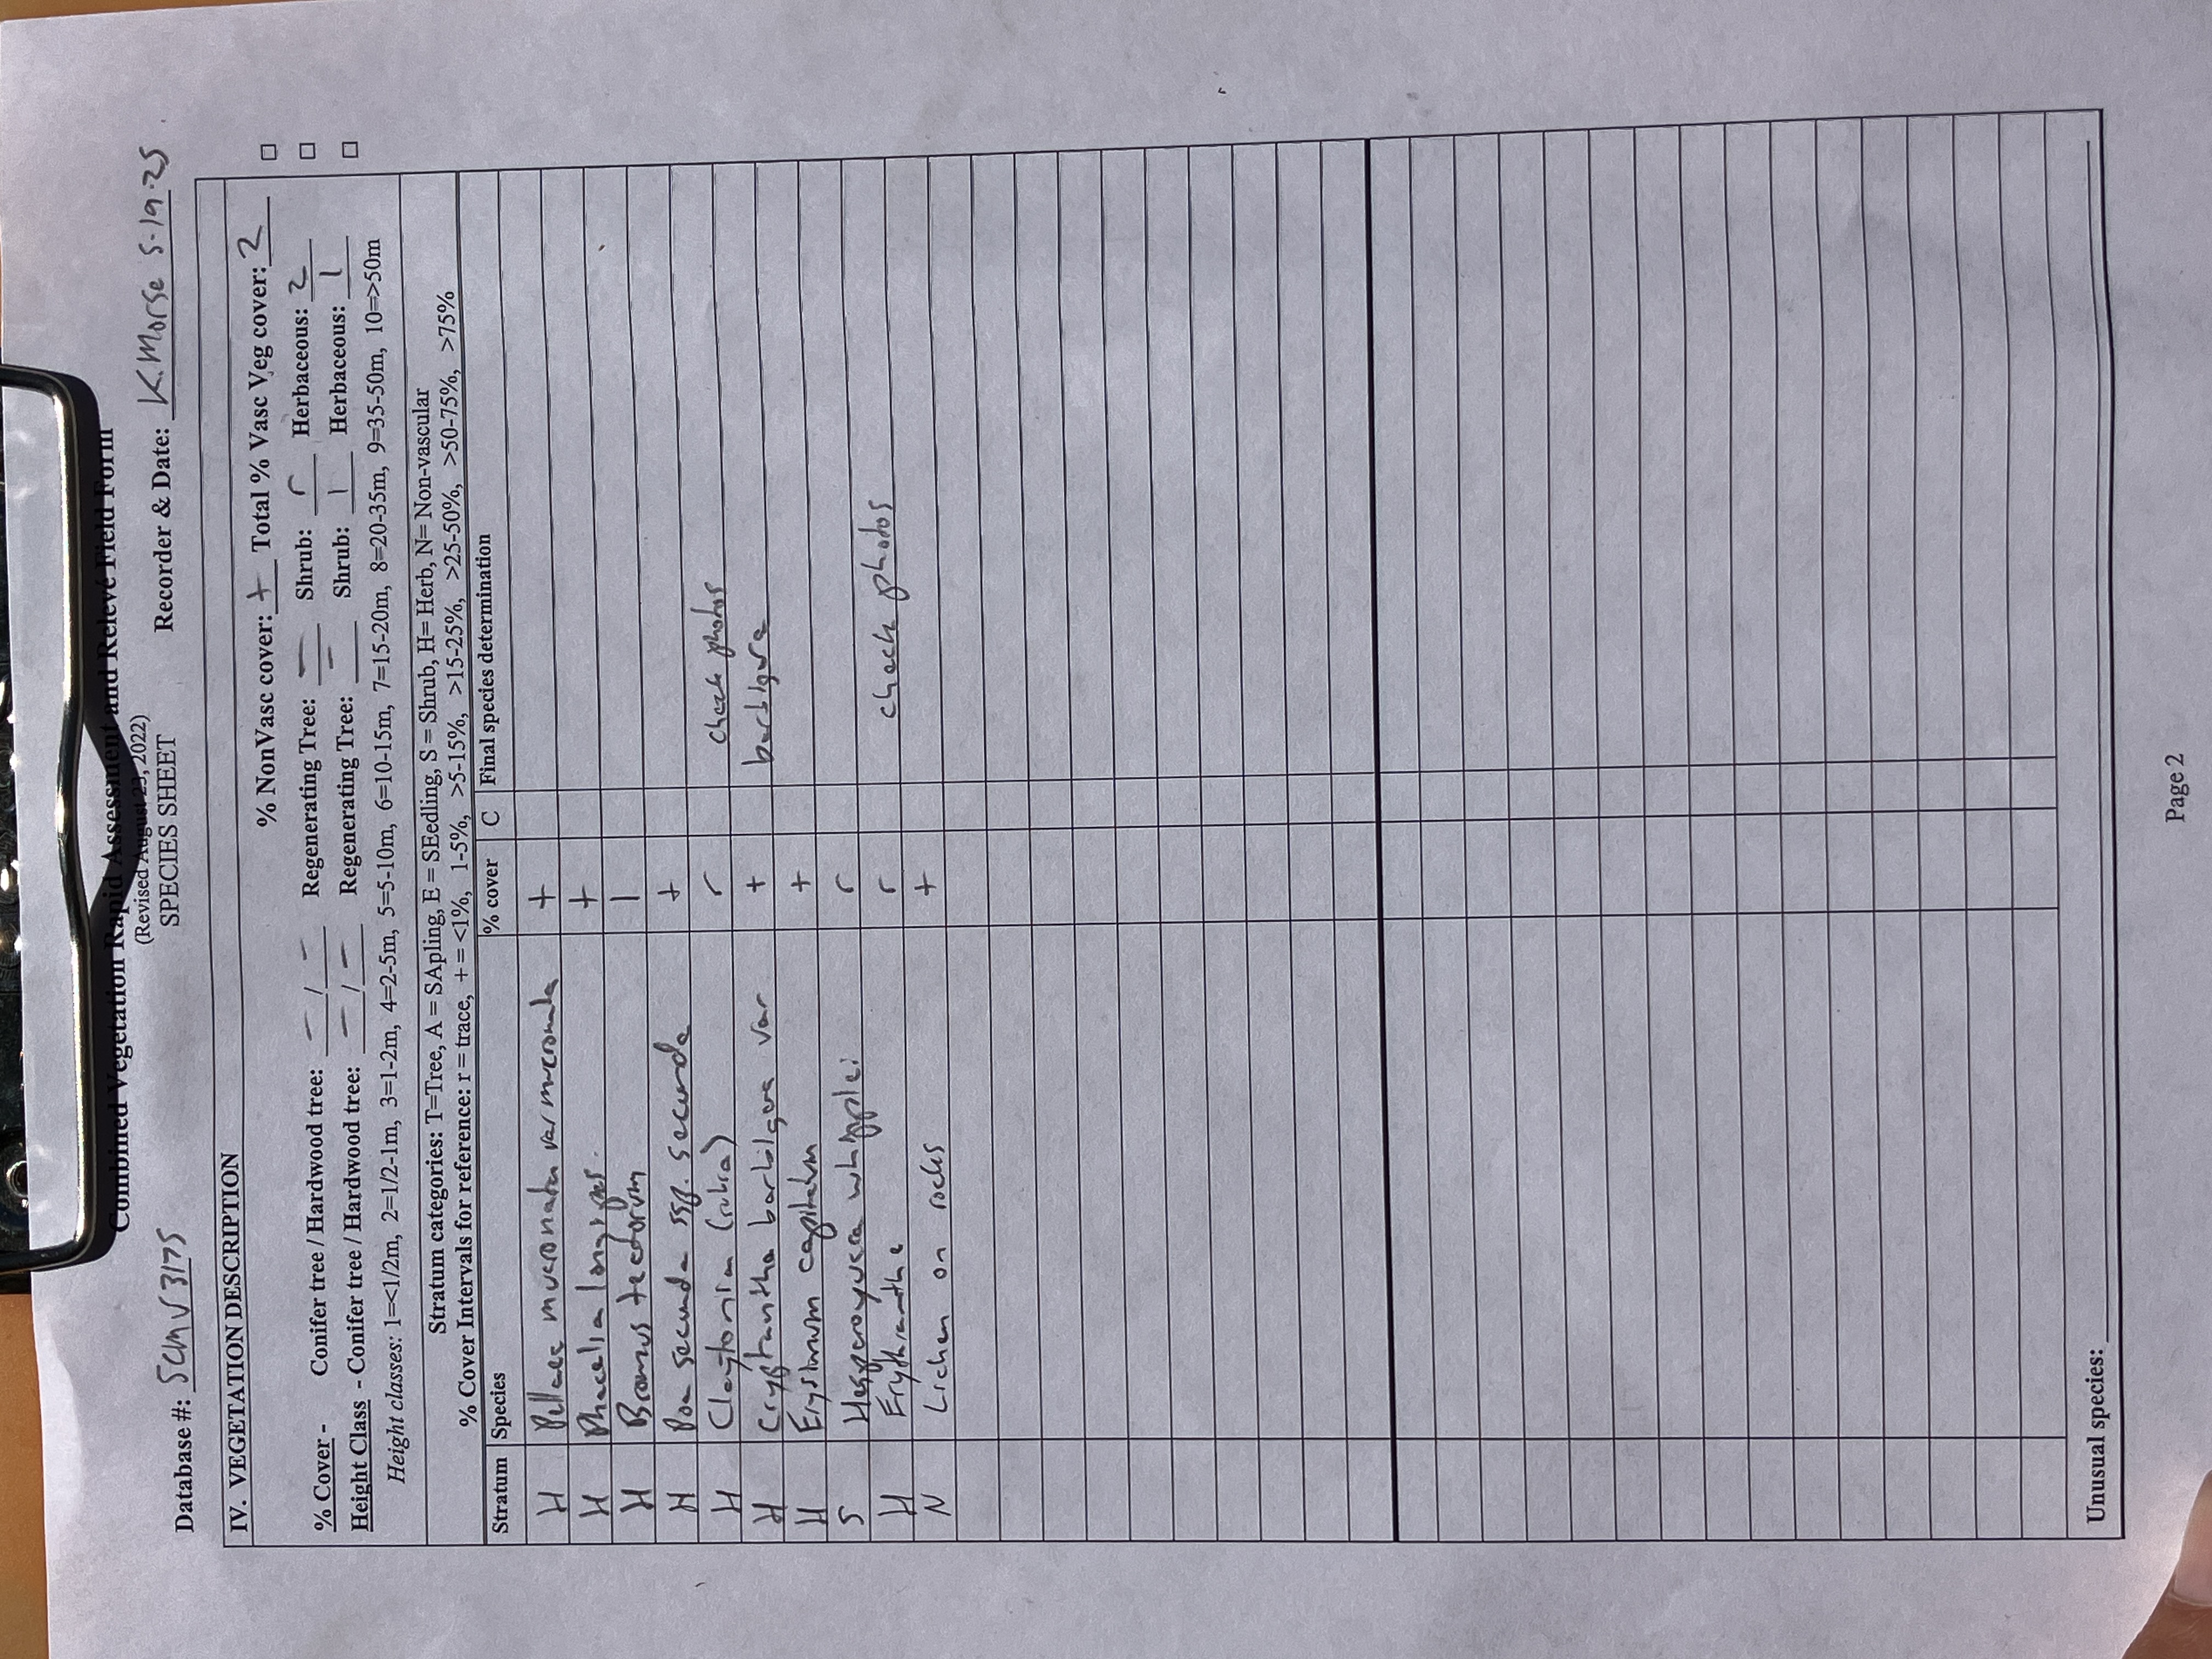 Combined Vegetation Rapid Assessment and Relevé Field Form
(Revised August 23, 2022)
SPECIES SHEET
Database #: SCMV3175 Recorder & Date: K.Morse 5-19-25
IV. VEGETATION DESCRIPTION
% NonVasc cover: + Total % Vasc Veg cover: 2 □
% Cover - Conifer tree / Hardwood tree: - / - Regenerating Tree: - Shrub: r Herbaceous: 2 □
Height Class - Conifer tree / Hardwood tree: - / - Regenerating Tree: - Shrub: 1 Herbaceous: 1 □
Height classes: 1=<1/2m, 2=1/2-1m, 3=1-2m, 4=2-5m, 5=5-10m, 6=10-15m, 7=15-20m, 8=20-35m, 9=35-50m, 10=>50m
Stratum categories: T=Tree, A = SApling, E = SEedling, S = Shrub, H= Herb, N= Non-vascular
% Cover Intervals for reference: r = trace, + = <1%, 1-5%, >5-15%, >15-25%, >25-50%, >50-75%, >75%
Stratum Species % cover C Final species determination
H Pellaea mucronata var mucronata +
H Phacelia longipes. +
H Bromus tectorum 1
H Poa secunda ssp. secunda +
H Claytonia (rubra) r check photos
H Cryptantha barbigera var + barbigera
H Erysimum capitatum +
S Hesperoyucca whipplei r
H Erythranthe r check photos
N Lichen on rocks +
Unusual species:
Page 2